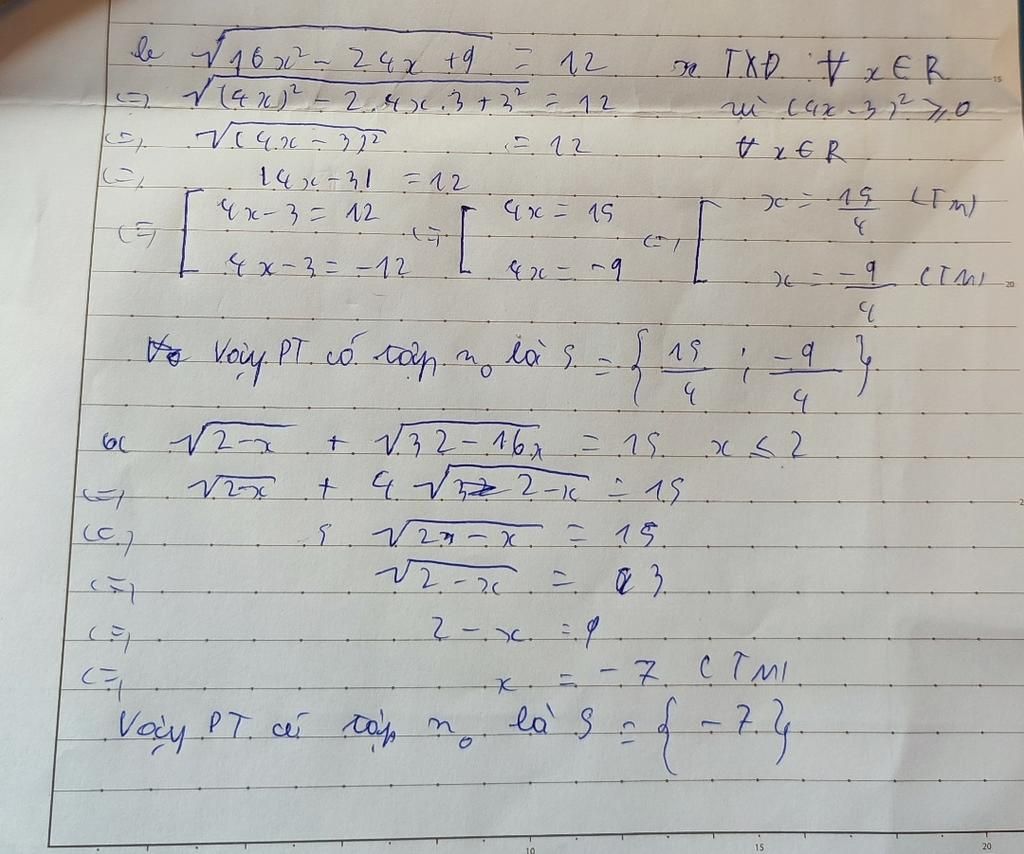 b √(16x² - 24x + 9) = 12 TXĐ ∀ x ∈ R
<=> √((4x)² - 2.4x.3 + 3²) = 12 vì (4x - 3)² ≥ 0
<=> √((4x - 3)²) = 12 ∀ x ∈ R
<=> |4x - 3| = 12
<=> [ 4x - 3 = 12 ; 4x - 3 = -12 <=> [ 4x = 15 ; 4x = -9 <=> [ x = 15/4 (TM) ; x = -9/4 (TM)
Vậy PT có tập n₀ là S = { 15/4 ; -9/4 }
c √(2-x) + √(32-16x) = 15 x ≤ 2
<=> √(2-x) + 4 √(2-x) = 15
<=> 5 √(2-x) = 15
<=> √(2-x) = 3
<=> 2 - x = 9
<=> x = -7 (TM)
Vậy PT có tập n₀ là S = { -7 }